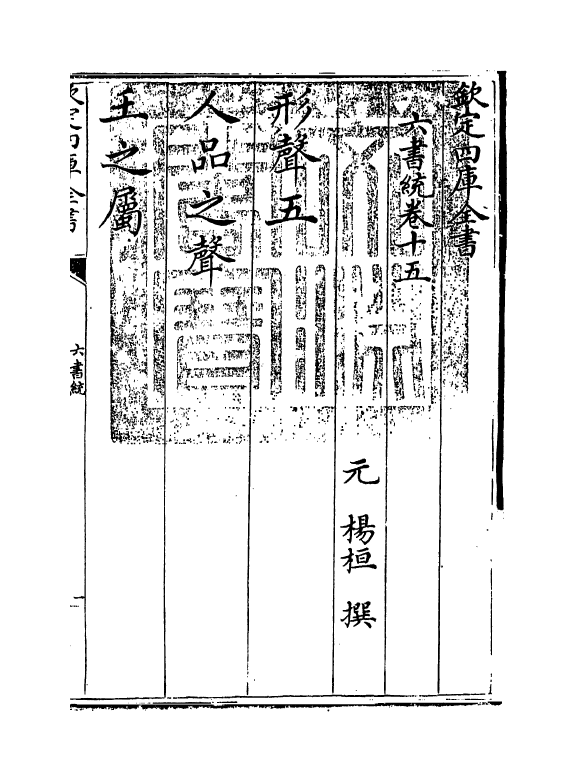 欽定四庫全書
六書統卷十五
元 楊桓 撰
形聲五
人品之聲
王之屬
欽定四庫全書
六書統
一